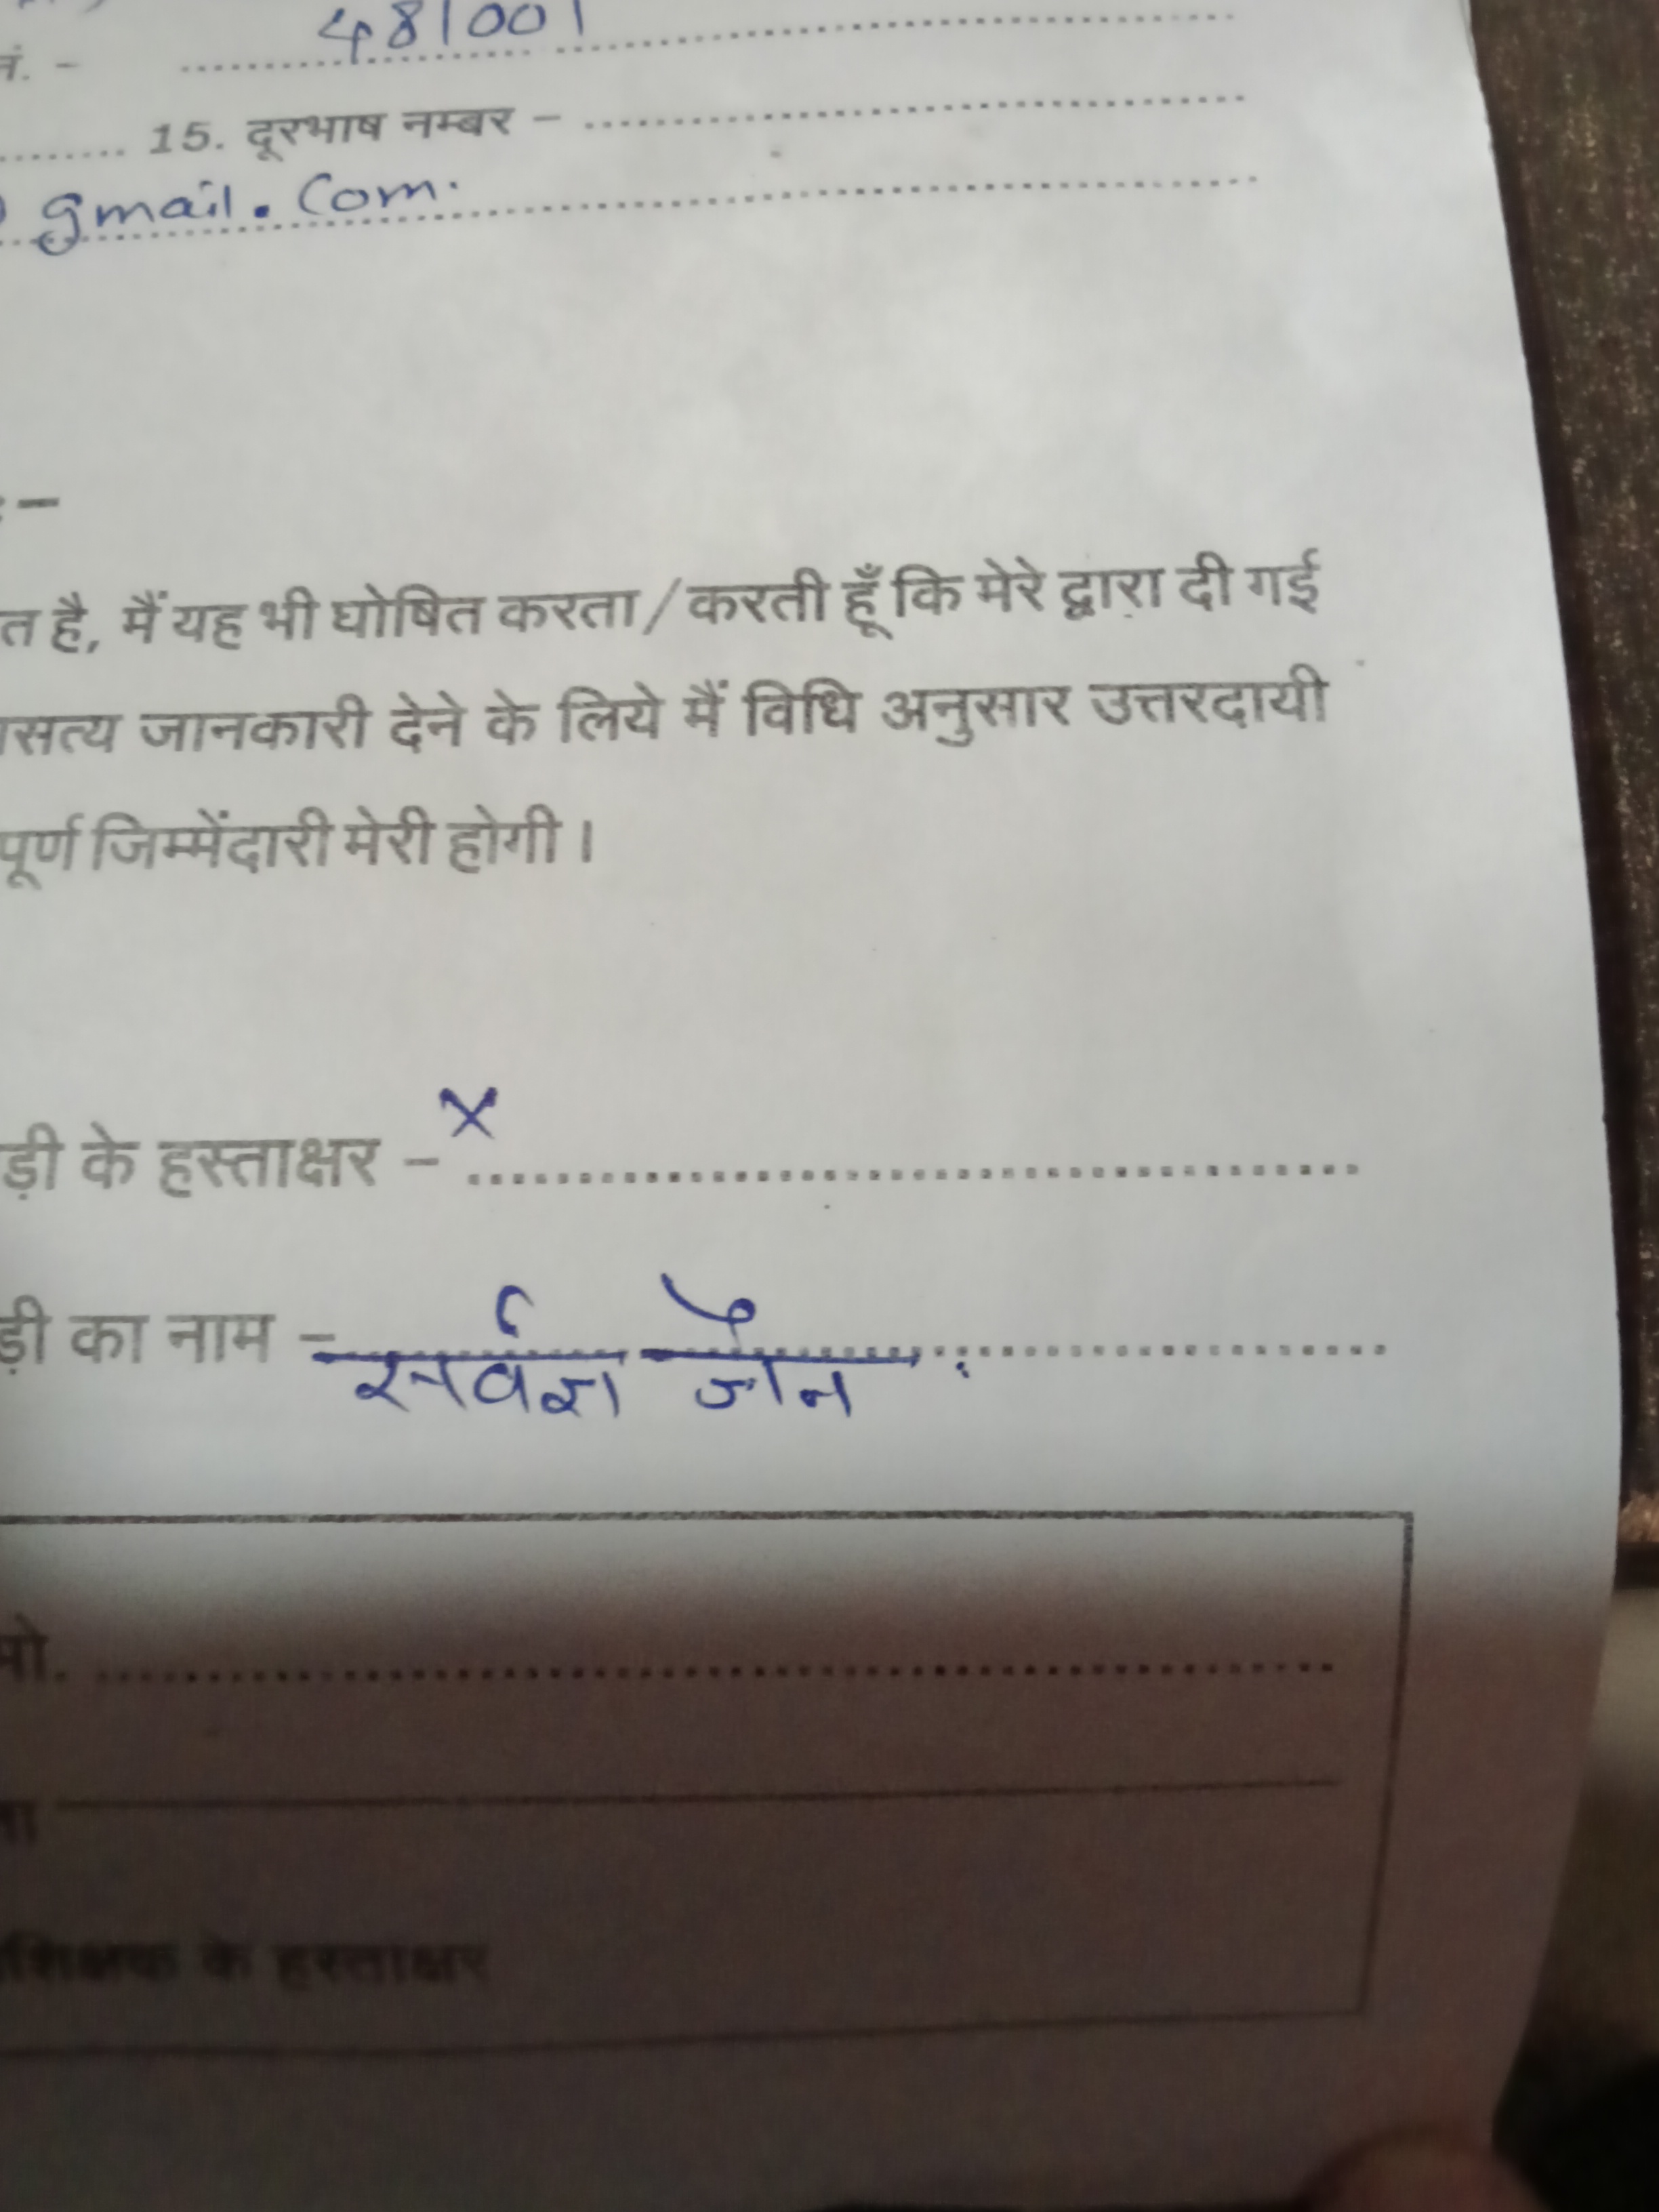 नं. - 481001
15. दूरभाष नम्बर -
gmail.com.
:-
त है, मैं यह भी घोषित करता/करती हूँ कि मेरे द्वारा दी गई
सत्य जानकारी देने के लिये मैं विधि अनुसार उत्तरदायी
पूर्ण जिम्मेंदारी मेरी होगी।
ड़ी के हस्ताक्षर - x
ड़ी का नाम - सर्वज्ञ जैन
मो.
ता
शिक्षक के हस्ताक्षर